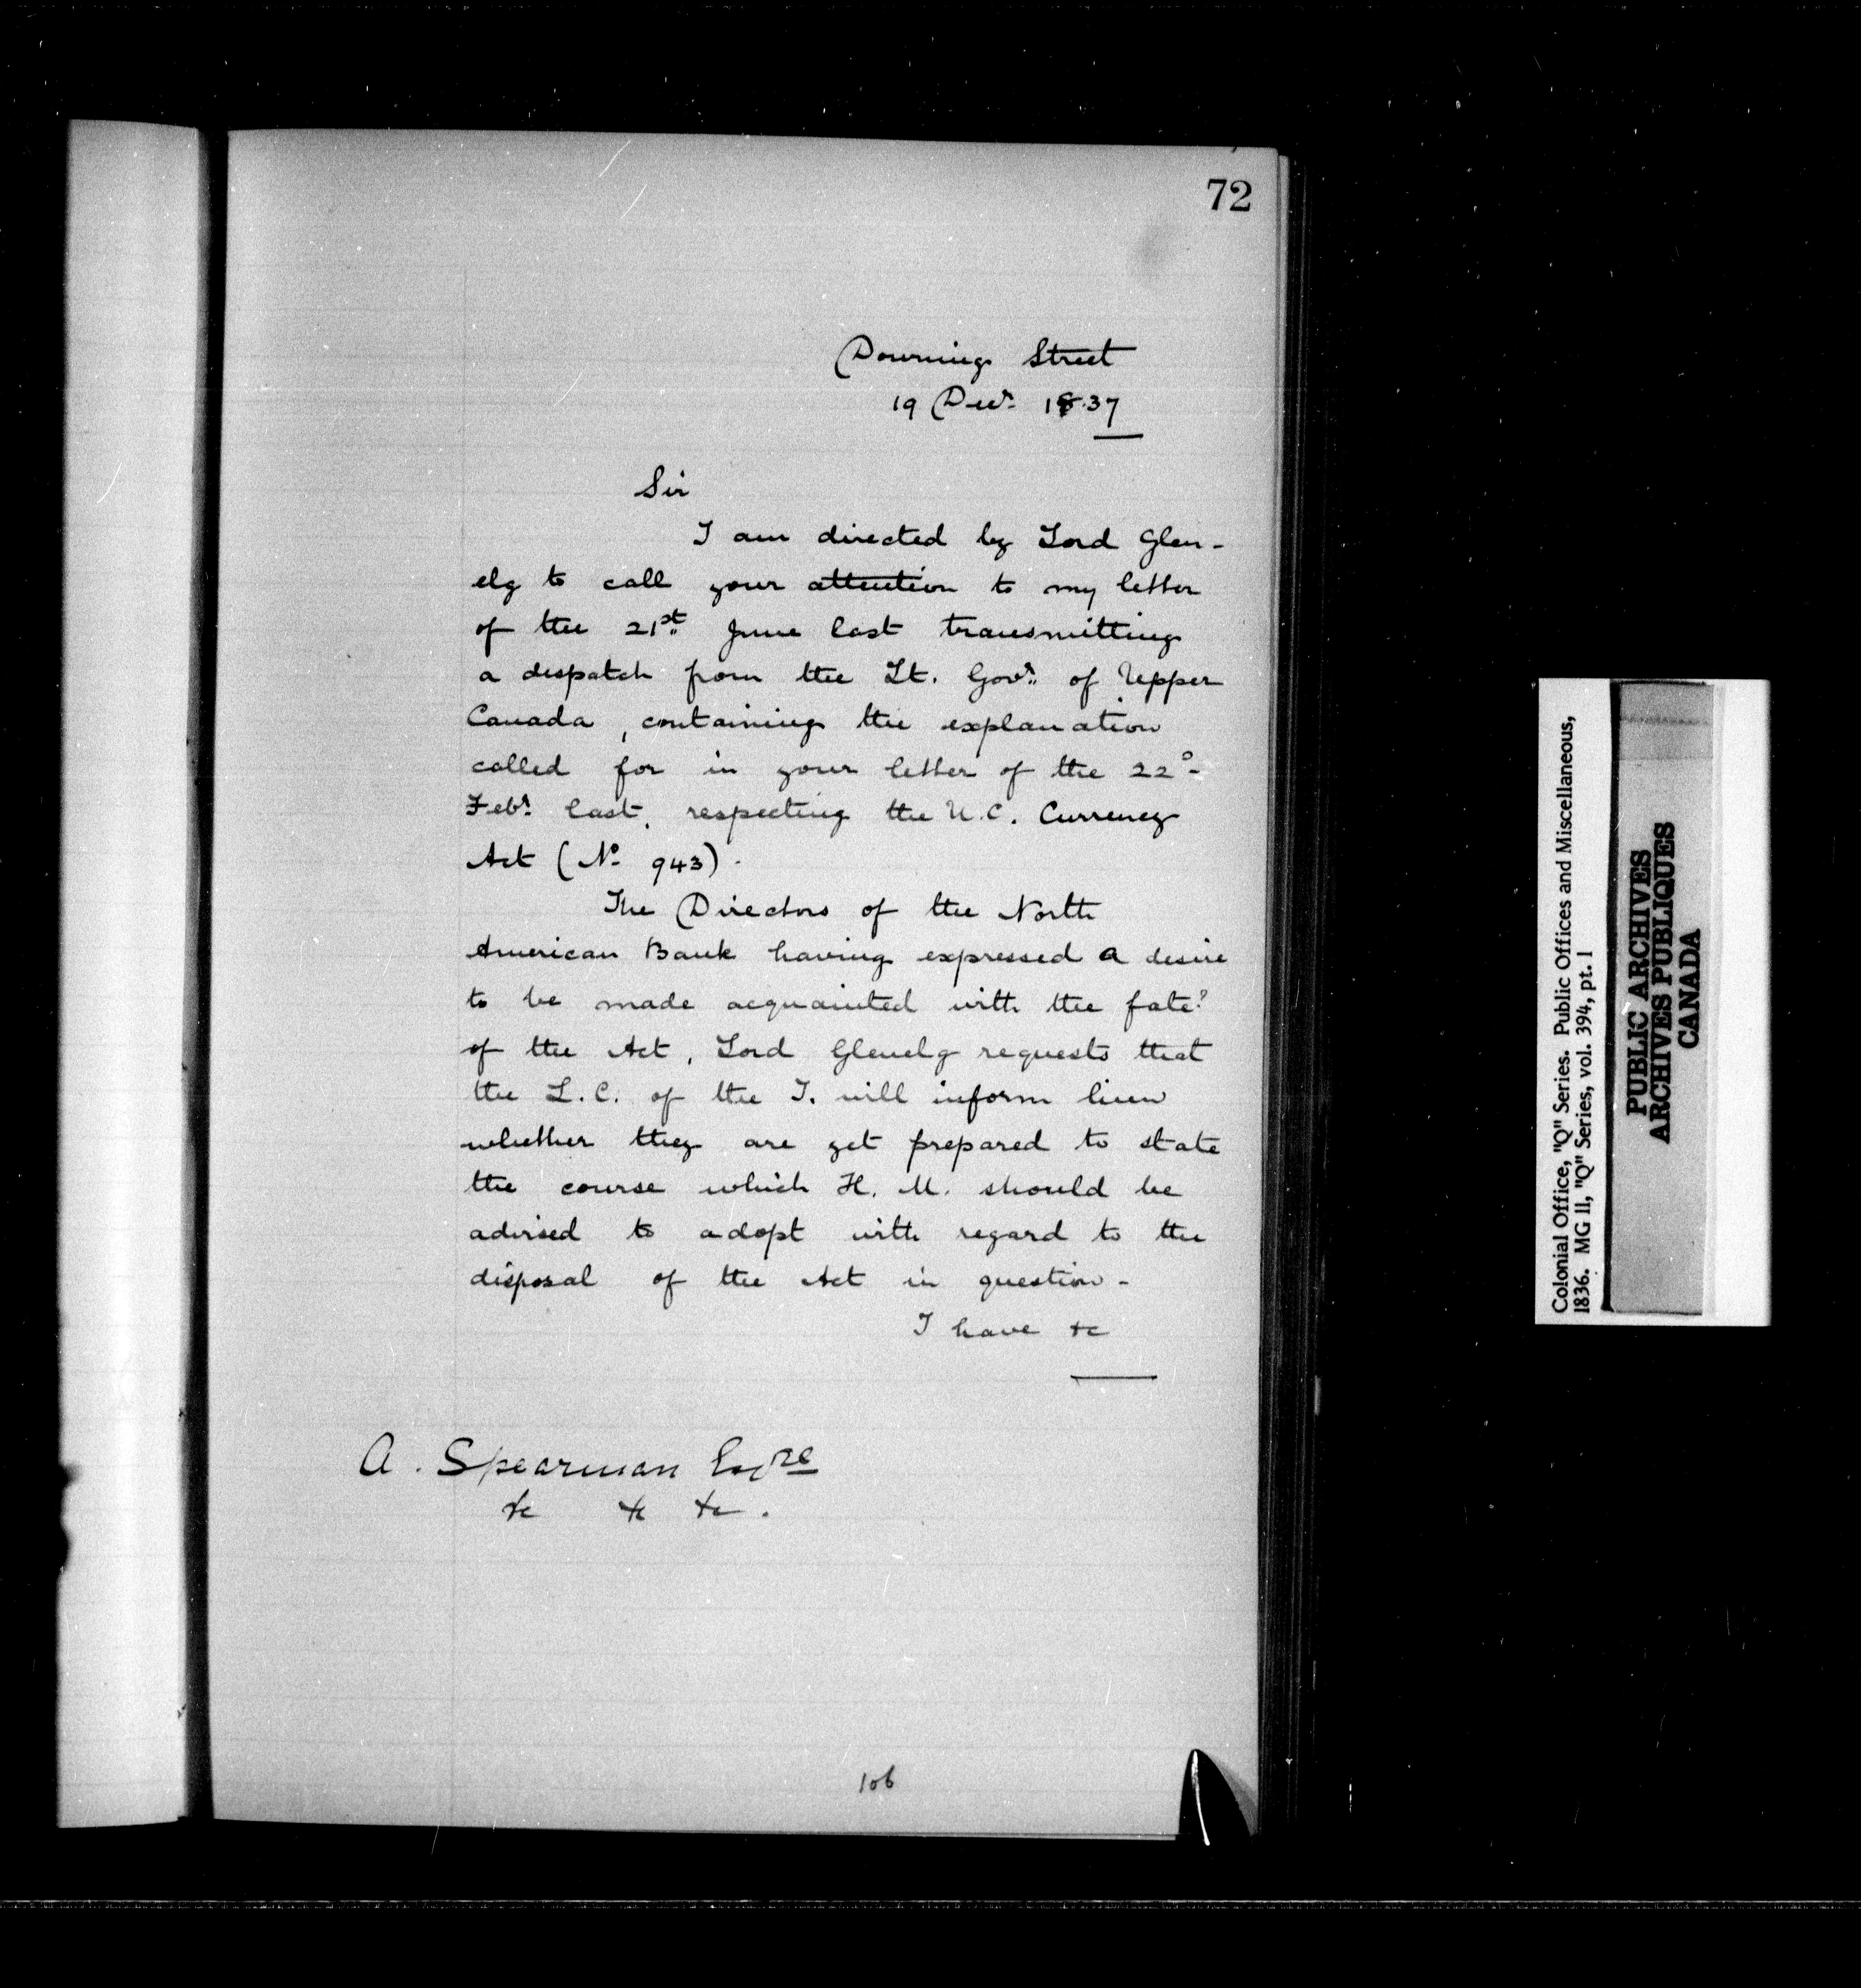 72
Downing Street
19 Decr. 1837
Sir
I am directed by Lord Glen-
elg to call your attention to my letter
of the 21st June last transmitting
a despatch from the Lt. Govr. of Upper
Canada, containing the explanation
called for in your letter of the 22o-
Febr. last, respecting the U.C. Currency
Act (No. 943).
The Directors of the North
American Bank having expressed a desire
to be made acquainted with the fate?
of the Act, Lord Glenelg requests that
the L.C. of the T. will inform him
whether they are yet prepared to state
the course which H. M. should be
advised to adopt with regard to the
disposal of the Act in question-
I have &c
A. Spearman Esqre
&c &c &c.
106
Colonial Office, "Q" Series. Public Offices and Miscellaneous,
1836. MG 11, "Q" Series, vol. 394, pt. 1
PUBLIC ARCHIVES
ARCHIVES PUBLIQUES
CANADA